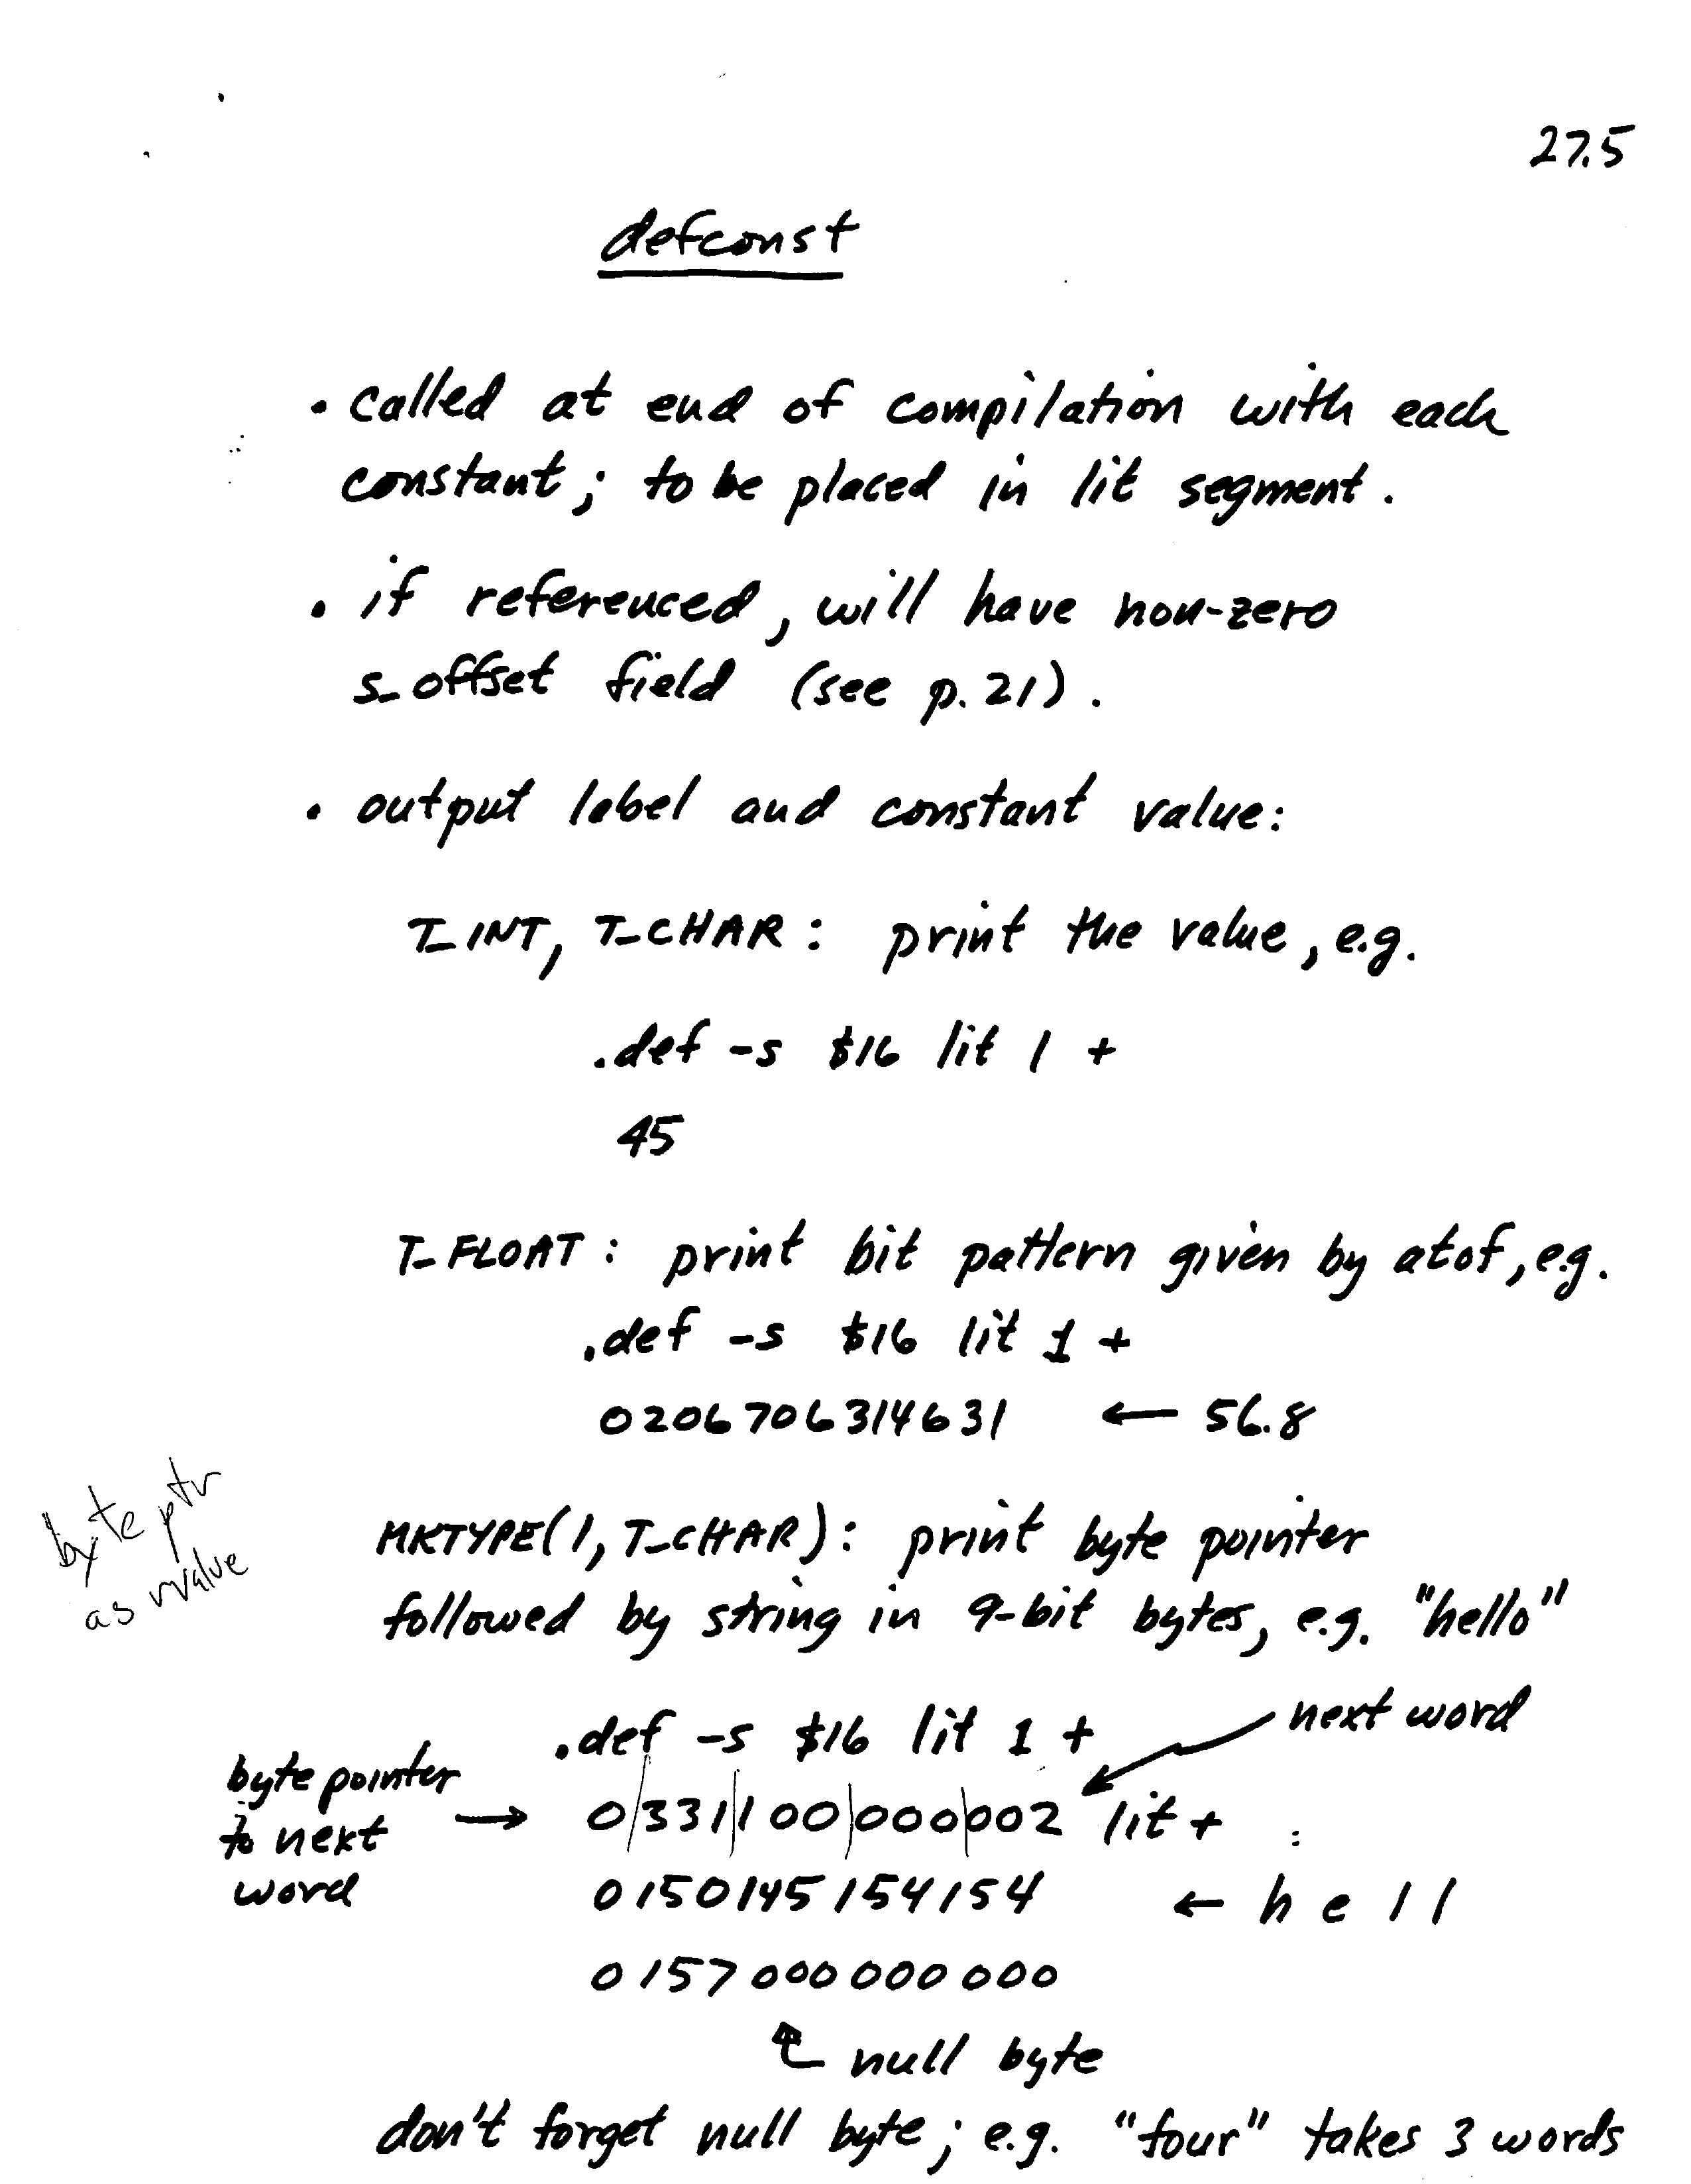 27.5
defconst
• called at end of compilation with each
constant; to be placed in lit segment.
• if referenced, will have non-zero
s_offset field (see p. 21).
• output label and constant value:
T_INT, T_CHAR: print the value, e.g.
.def -s $16 lit 1 +
45
T_FLOAT: print bit pattern given by atof, e.g.
.def -s $16 lit 1 +
0206706314631 ← 56.8
byte ptr
as rvalue
MKTYPE(1, T_CHAR): print byte pointer
followed by string in 9-bit bytes, e.g. "hello"
.def -s $16 lit 1 +
next word
byte pointer
to next
word
→ 0331100000002 lit +
0150145154154 ← h e l l
0157000000000
null byte
don't forget null byte; e.g. "four" takes 3 words